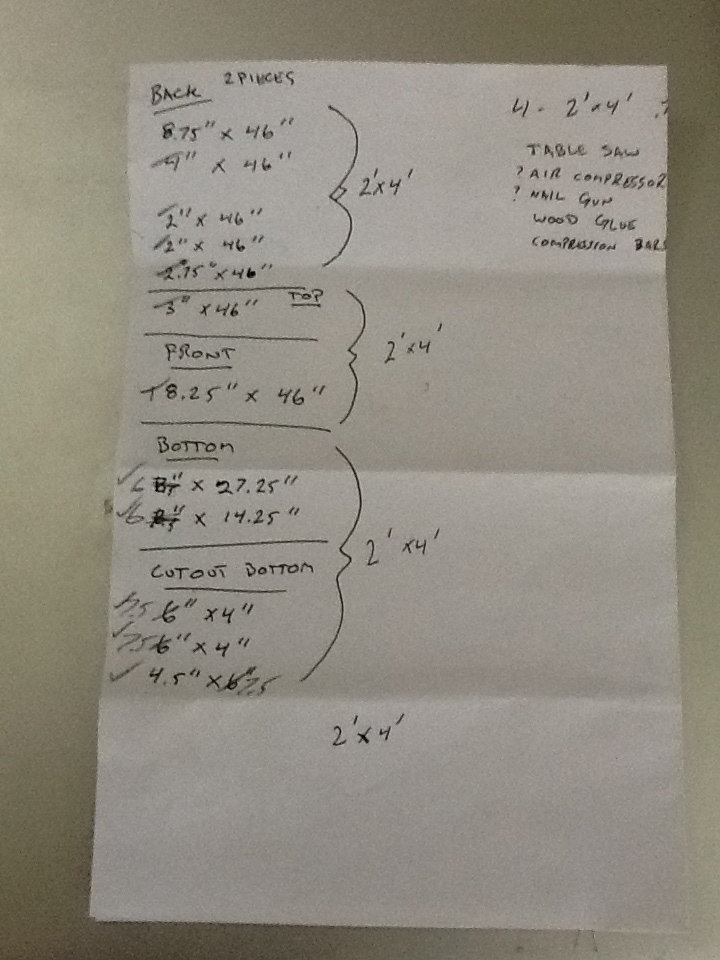 BACK 2 PIECES
8.75" x 46"
4" x 46"
2" x 46"
2" x 46"
2.75" x 46"
2'x4'
3" x 46" TOP
FRONT
8.25" x 46"
2'x4'
BOTTOM
6 x 27.25"
6 x 14.25"
CUTOUT BOTTOM
7.5 6" x 4"
7.5 6" x 4"
4.5" x 6" 7.5
2'x4'
2'x4'
4 - 2'x4'
TABLE SAW
? AIR COMPRESSOR
? NAIL GUN
WOOD GLUE
COMPRESSION BARS